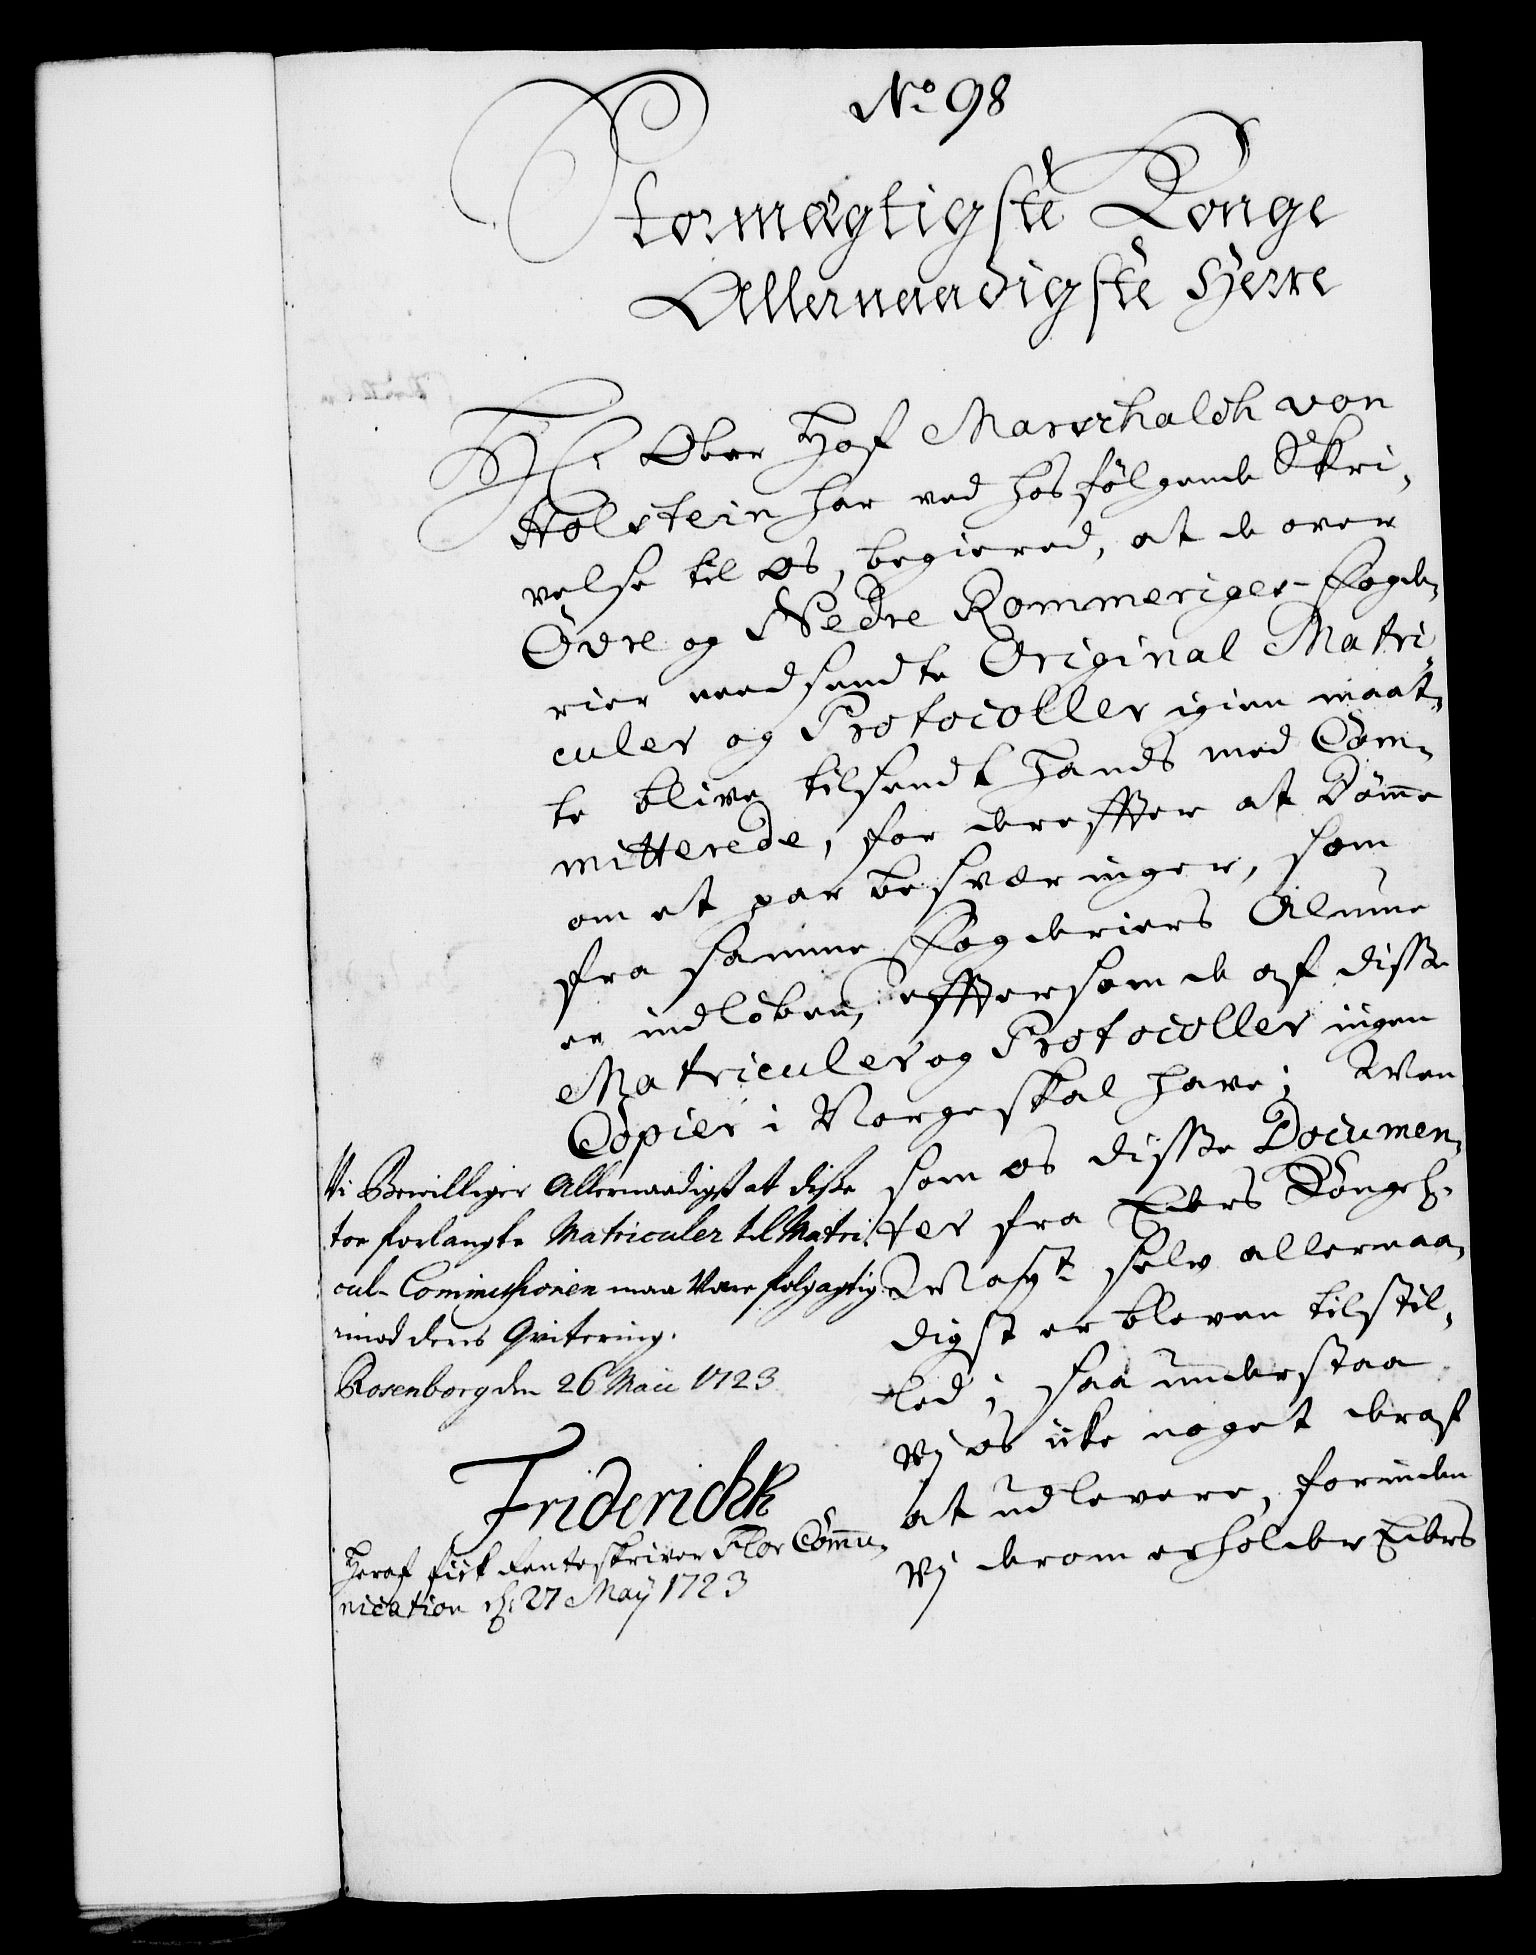 No 98
Stormægtigste Konge
Allernaadigste Herre
Hr Ober Hof Marschalch von
Holstein har ved hosfölgende Skri-
velse til os, begiered, at de over
Övre og Nedre Rommeriges Fogde-
rier need sendte Original Matri-
culer og Protocoller igien maat-
te blive tilsendt Hands med Com-
mitterede, for derefter at Dömme
om et par besværinger, som
fra samme Fogderiers Almue
er indlöben, eftersom de af disse
Matriculer og Protocoller ingen
Copier i Norge skal have; Men
som os disse Documen-
ter fra Eders Kongel:
May:t selv allernaa-
digst er bleven tilstil-
led; saa understaa
Vj os icke noget deraf
at udlevere, forinden
Vj derom erholder Eders
Vi Bevilliger Allernaadigst at disse
tvende forlangte Matriculer til Matri-
cul-Commissionen maa Være folgagtig
imod deris Qvitering.
Rosenborg den 26 Maii 1723
Friderich R
Heraf fick Renteskriver Flor Commu-
nication d: 27 May 1723